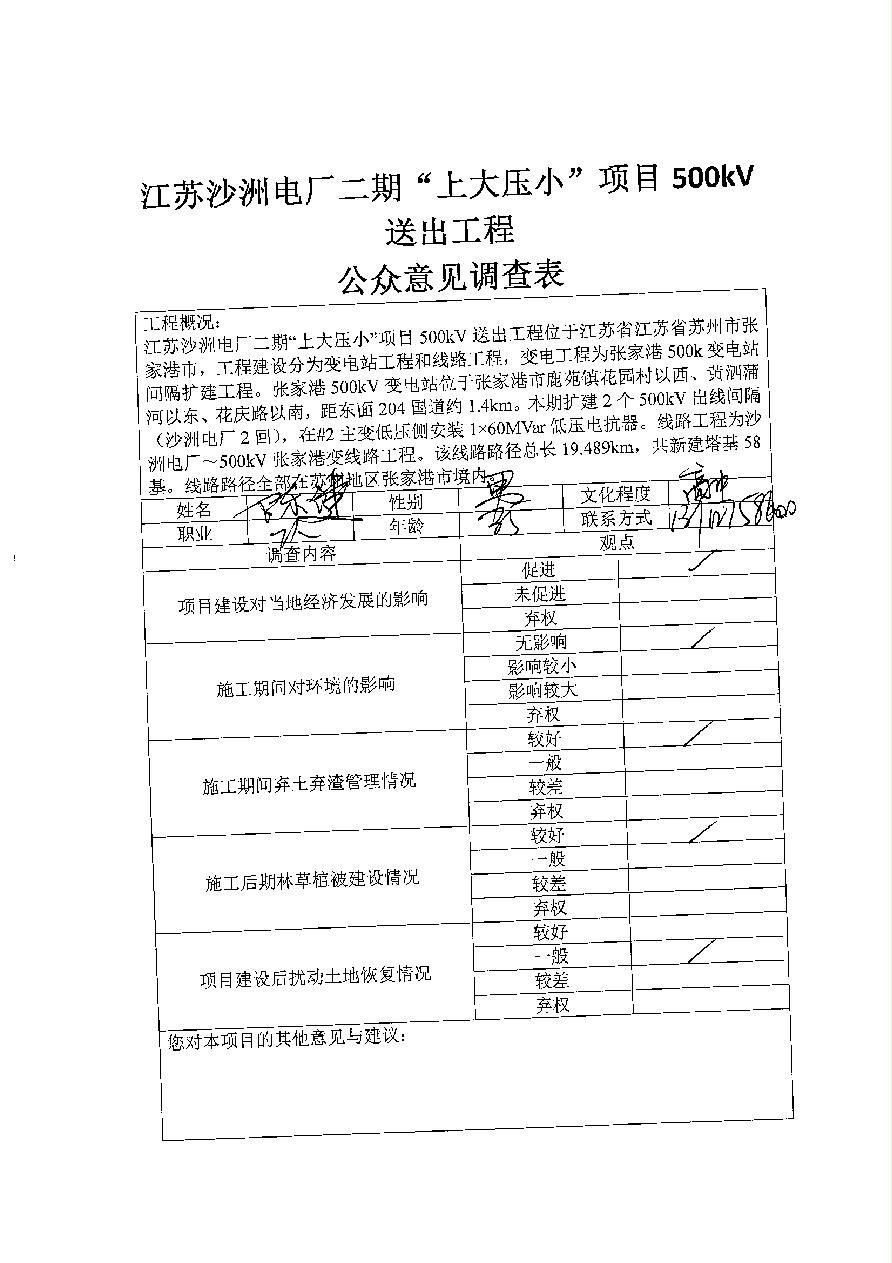 江苏沙洲电厂二期“上大压小”项目 500kV
送出工程
公众意见调查表
工程概况：
江苏沙洲电厂二期“上大压小”项目 500kV 送出工程位于江苏省江苏省苏州市张
家港市，工程建设分为变电站工程和线路工程，变电工程为张家港 500k 变电站
间隔扩建工程。张家港 500kV 变电站位于张家港市鹿苑镇花园村以西、黄泗浦
河以东、花庆路以南，距东面 204 国道约 1.4km。本期扩建 2 个 500kV 出线间隔
（沙洲电厂 2 回），在#2 主变低压侧安装 1×60MVar 低压电抗器。线路工程为沙
洲电厂～500kV 张家港变线路工程。该线路路径总长 19.489km，共新建塔基 58
基。线路路径全部在苏州地区张家港市境内。
姓名 性别 男 文化程度 高中
职业 年龄 联系方式
调查内容 观点
项目建设对当地经济发展的影响
促进 ✓
未促进
弃权
施工期间对环境的影响
无影响 ✓
影响较小
影响较大
弃权
施工期间弃土弃渣管理情况
较好 ✓
一般
较差
弃权
施工后期林草植被建设情况
较好 ✓
一般
较差
弃权
项目建设后扰动土地恢复情况
较好
一般 ✓
较差
弃权
您对本项目的其他意见与建议：